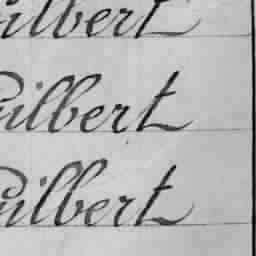 Gilbert
Gilbert
Gilbert